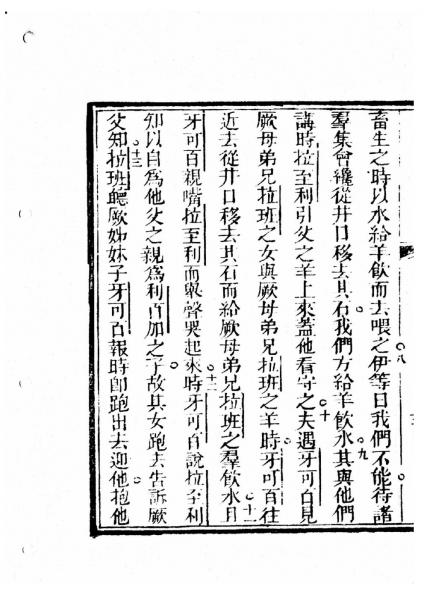 畜生之時以水給羊飲而去喂之伊等曰我們不能待諸
羣集會纔從井口移去其石我們方給羊飲水其與他們
講時拉至利引父之羊上來蓋他看守之夫遇牙可百見
厥母弟兄拉班之女與厥母弟兄拉班之羊時牙可百往
近去從井口移去其石而給厥母弟兄拉班之羣飲水且
牙可百親嘴拉至利而舉聲哭起來時牙可百說拉至利
知以自為他父之親為利百加之子故其女跑去告訴厥
父知拉班聽厥姊妹子牙可百報時即跑出去迎他抱他